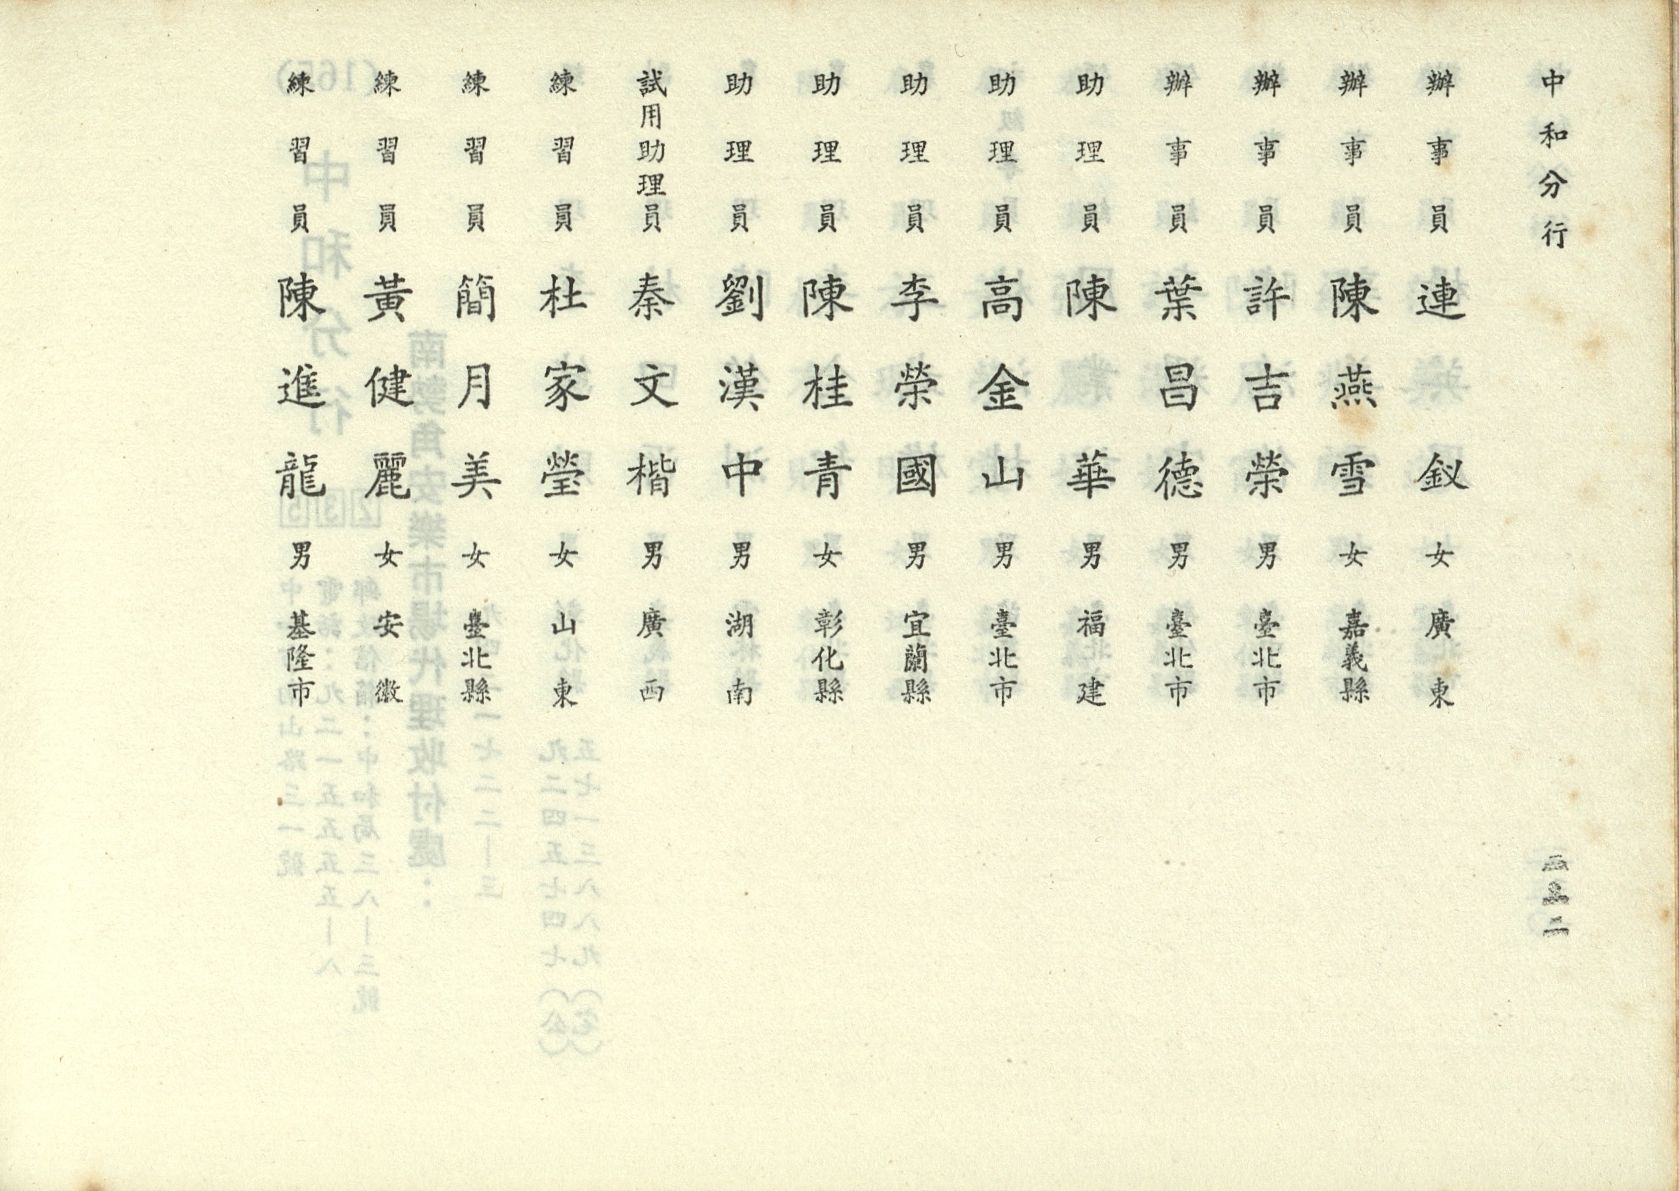 中和分行
辦事員 連釵 女 廣東
辦事員 陳燕雪 女 嘉義縣
辦事員 許吉榮 男 臺北市
辦事員 葉昌德 男 臺北市
助理員 陳華 男 福建
助理員 高金山 男 臺北市
助理員 李榮國 男 宜蘭縣
助理員 陳桂青 女 彰化縣
助理員 劉漢中 男 湖南
試用助理員 秦文楷 男 廣西
練習員 杜家瑩 女 山東
練習員 簡月美 女 臺北縣
練習員 黃健麗 女 安徽
練習員 陳進龍 男 基隆市